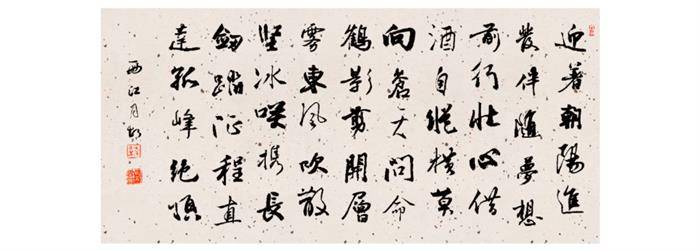 迎著朝陽進
發伴隨夢想
前行壯心借
酒自縱橫莫
向蒼天問命
鶴影剪開層
雾東風吹散
堅冰咲携長
劔踏征程直
達孤峰絶頂
西江月